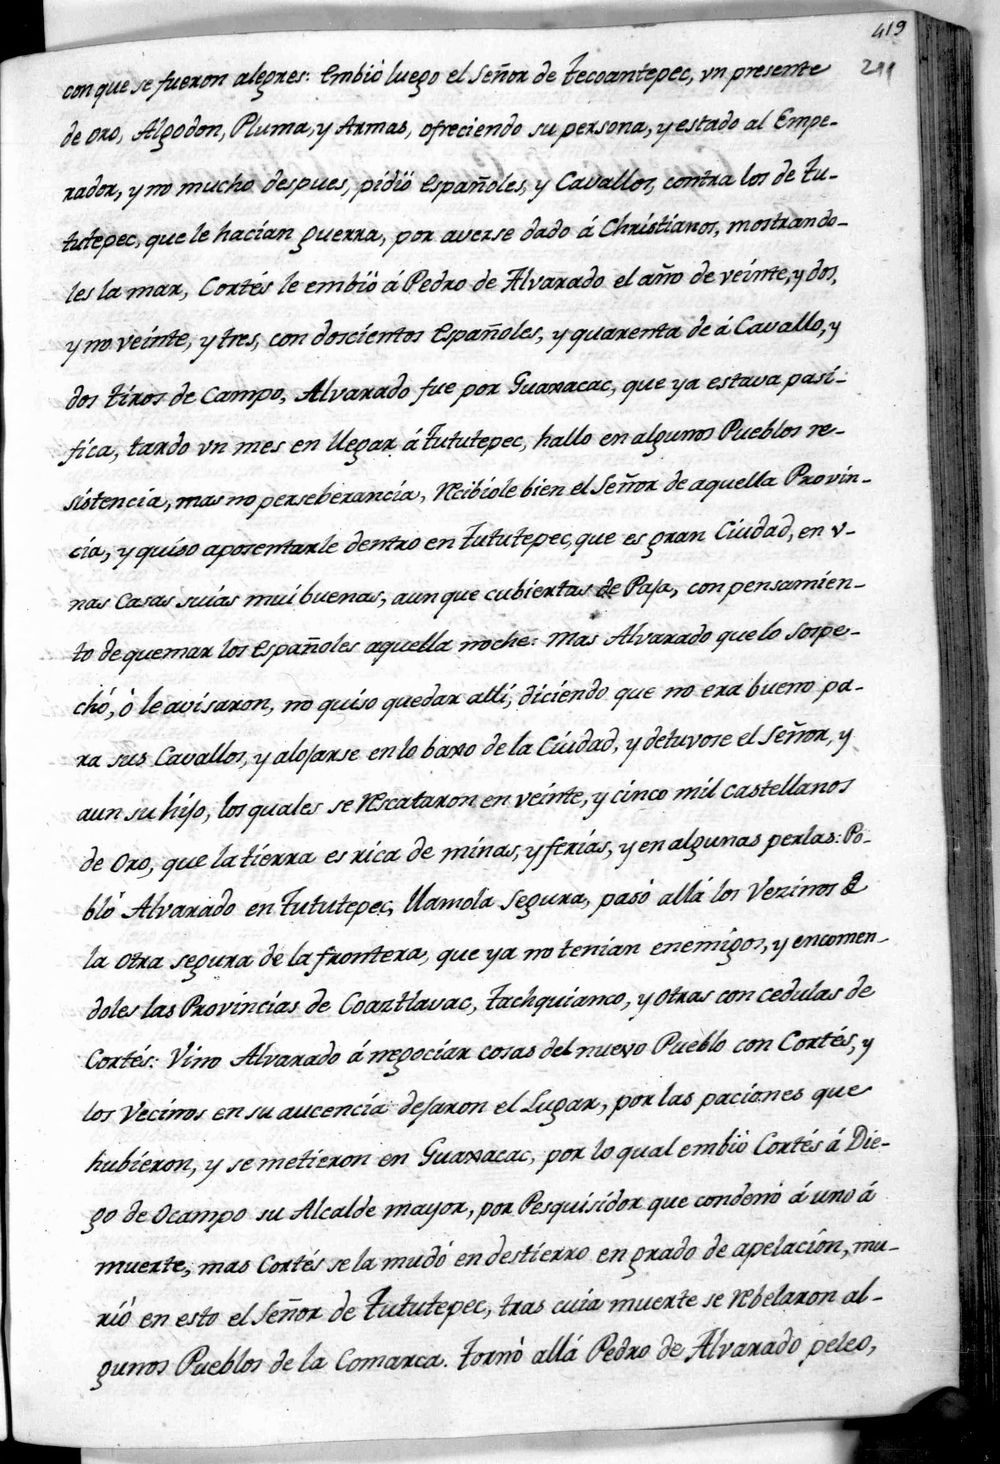 419
211
con que se fueron alegres: embiò luego el Señor de Tecoantepec, vn presente
de oro, Algodon, Pluma, y Armas, ofreciendo su persona, y estado al Empe-
rador, y no mucho despues, pidiò Españoles, y Cavallos, contra los de Tu-
tutepec, que le hacian guerra, por averse dado á Christianos, mostrando-
les la mar, Cortés le embiò á Pedro de Alvarado el año de veinte, y dos,
y no veinte, y tres, con doscientos Españoles, y quarenta de á Cavallo, y
dos tiros de Campo, Alvarado fue por Guaxacac, que ya estava pasi-
fica, tardo vn mes en llegar á Tututepec, hallo en algunos Pueblos re-
sistencia, mas no perseberancia, recibiole bien el Señor de aquella Provin-
cia, y quiso aposentarle dentro en Tututepec, que es gran Ciudad, en v-
nas Casas suias mui buenas, aun que cubiertas de Paja, con pensamien-
to de quemar los españoles aquella noche: mas Alvarado que lo sospe-
chó, ò le avisaron, no quiso quedar alli, diciendo que no era bueno pa-
ra sus Cavallos, y alojarse en lo baxo de la Ciudad, y detuvose el Señor, y
aun su hijo, los quales se rescataron en veinte, y cinco mil castellanos
de Oro, que la tierra es rica de minas, y ferias, y en algunas perlas: Po-
blò Alvarado en Tututepec, llamola Segura, pasò allá los Vezinos de
la otra segura de la frontera, que ya no tenian enemigos, y encomen-
doles las Provincias de Coaztlavac, Tachquianco, y otras con cedulas de
Cortés: Vino Alvarado á negociar cosas del nuevo Pueblo con Cortés, y
los Vecinos en su aucencia dejaron el Lugar, por las paciones que
hubieron, y se metieron en Guaxacac, por lo qual embiò Cortés á Die-
go de Ocampo su Alcalde mayor, por Pesquisidor que condenó á uno á
muerte, mas Cortés se la mudó en destierro en grado de apelacion, mu-
rió en esto el Señor de Tututepec, tras cuia muerte se rebelaron al-
gunos Pueblos de la Comarca. Tornò allá Pedro de Alvarado peleo,